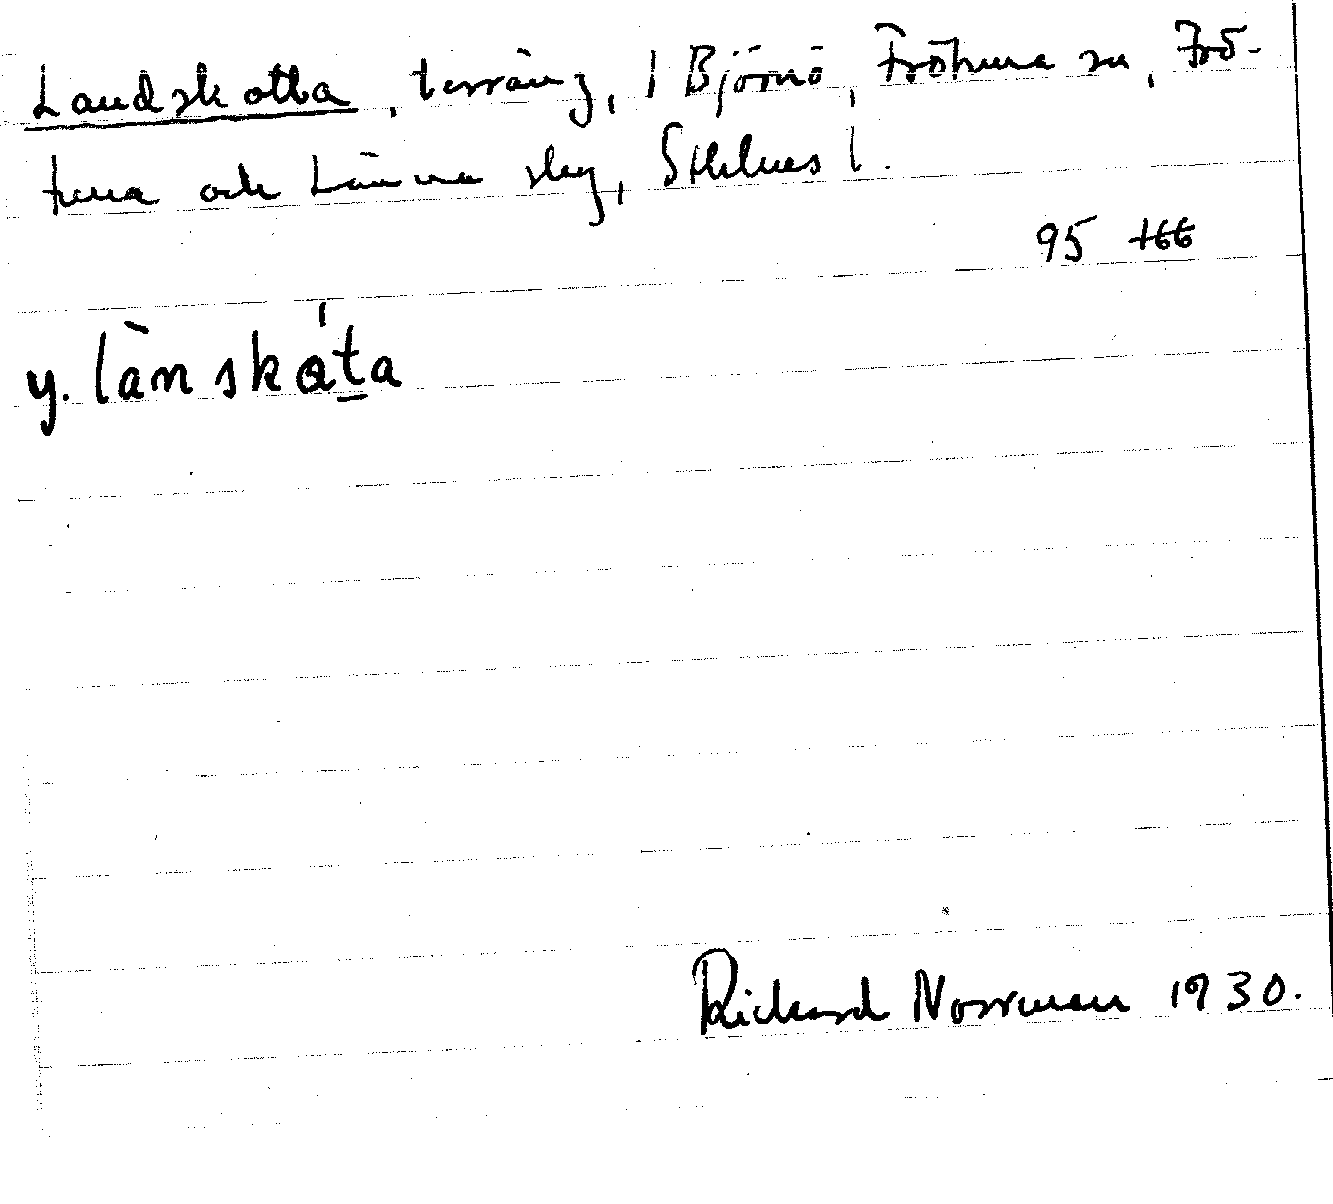 Landskatta, terräng, 1 Björnö, Frötuna sn, Frö-
tuna och Länna skg, Sthlms l.
95 166
y. lànskáta
Rickard Norrman 1930.